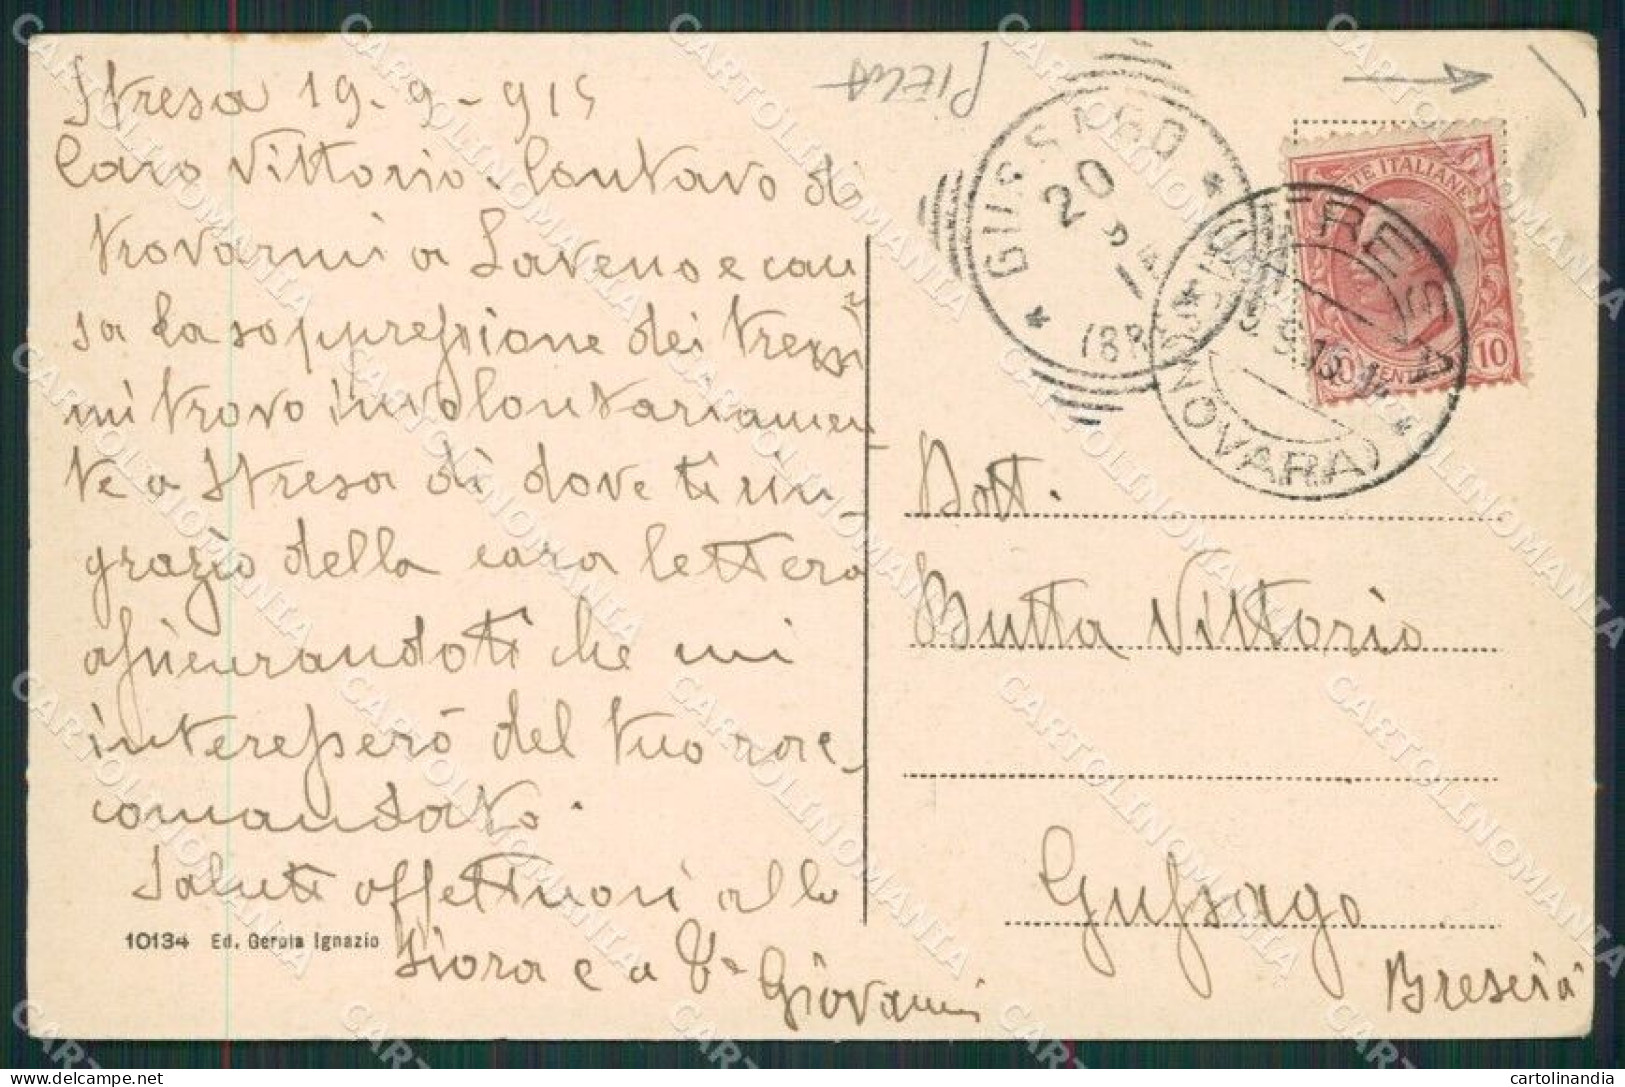 PIEGA
Stresa 19-9-915
Caro Vittorio. Contavo di
trovarmi a Laveno e cau
sa la soppressione dei treni
mi trovo involontariamen
te a Stresa di dove ti rin-
grazio della cara lettera
assicurandoti che mi
interesserò del tuo rac-
comandato.
Saluti affettuosi alla
Siora e a Te
Giovanni
10134 Ed. Gerola Ignazio
GUSSAGO
20
(BR
STRESA
(NOVARA)
POSTE ITALIANE
10
CENT
Dott.
Butta Vittorio
Gussago
Brescia
CARTOLINOMANIA
cartolinandia